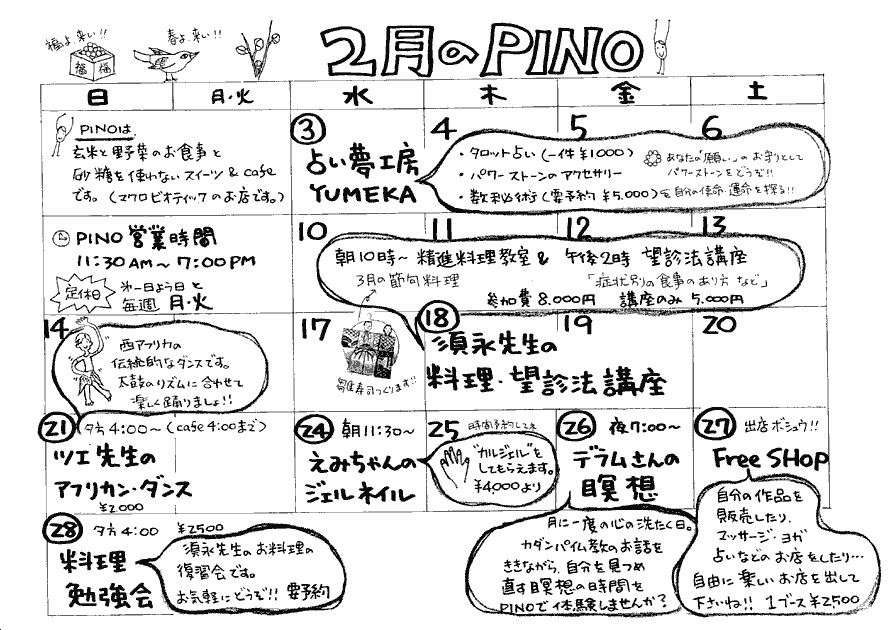 福よ、来い!!
春よ、来い!!
福 福
2月のPINO
日 月・火 水 木 金 土
PINOは、
玄米と野菜のお食事と
砂糖を使わないスイーツ & cafe
です。(マクロビオティックのお店です。)
③
占い夢工房
YUMEKA
4 5 6
・タロット占い(一件¥1000)
・パワーストーンのアクセサリー
・数秘術(要予約 ¥5,000)
あなたの「願い」のお守りとして
パワーストーンをどうぞ!!
自分の使命・運命を探る!!
PINO 営業時間
11:30AM～7:00PM
定休日
第一日よう日と
毎週 月・火
10 11 12 13
朝10時～ 精進料理教室 & 午後2時 望診法講座
3月の節句料理
「症状別の食事のあり方 など」
参加費 8.000円 講座のみ 5.000円
14
西アフリカの
伝統的なダンスです。
太鼓のリズムに合わせて
楽しく踊りましょ!!
17
雛寿司つくります!!
⑱ 19 20
須永先生の
料理・望診法講座
㉑ 夕方4:00～(cafe 4:00まで)
ツエ先生の
アフリカン・ダンス
¥2000
㉔ 朝11:30～
えみちゃんの
ジェルネイル
25 時間予約してネ
"カルジェル"を
してもらえます。
¥4,000より
㉖ 夜7:00～
デラムさんの
瞑想
月に一度の心の洗たく日。
カダンパイム教のお話を
ききながら、自分を見つめ
直す瞑想の時間を
PINOで体験しませんか?
㉗ 出店ボシュウ!!
Free SHOP
自分の作品を
販売したり、
マッサージ、ヨガ
占いなどのお店をしたり…
自由に楽しいお店を出して
下さいね!! 1ブース¥2,500
㉘ 夕方4:00 ¥2500
料理
勉強会
須永先生のお料理の
復習会です。
お気軽にどうぞ!! 要予約